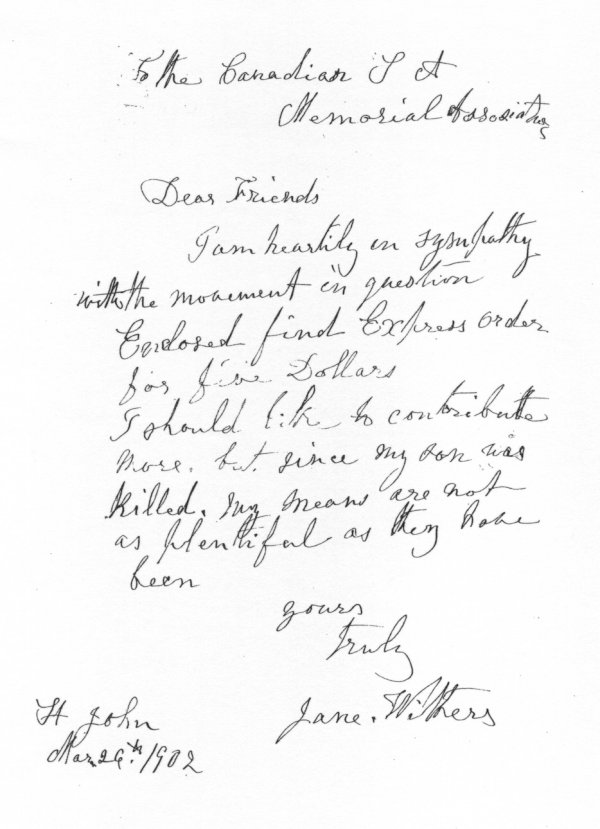 To the Canadian S A
Memorial Association
Dear Friends
I am heartily in sympathy
with the movement in question
Enclosed find Express order
for five Dollars
I should like to contribute
more. but. since my son was
killed. my means are not
as plentiful as they have
been
yours
truly
Jane. Withers
St John
Mar 29th. 1902